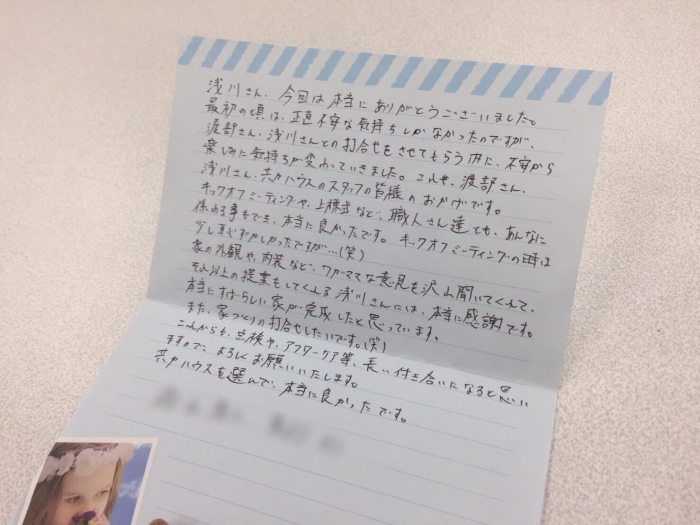 浅川さん、今回は本当にありがとうございました。
最初の頃は、正直不安な気持ちしかなかったのですが、
渡部さん、浅川さんとの打合せをさせてもらう内に、不安から
楽しみに気持ちが変わっていきました。これも、渡部さん、
浅川さん、共力ハウスのスタッフの皆様のおかげです。
キックオフミーティングや、上棟式など、職人さん達とも、あんなに
係われる事もでき、本当に良かったです。キックオフミーティングの時は
少し恥ずかしかったですが…(笑)
家の外観や、内装など、ワガママな意見も沢山聞いてくれて、
それ以上の提案もしてくれる浅川さんには、本当に感謝です。
本当にすばらしい家が完成したと思っています。
また、家づくりの打合せしたいです。(笑)
これからも、点検や、アフターケア等、長い付き合いになると思い
ますので、よろしくお願いいたします。
共力ハウスを選んで、本当に良かったです。